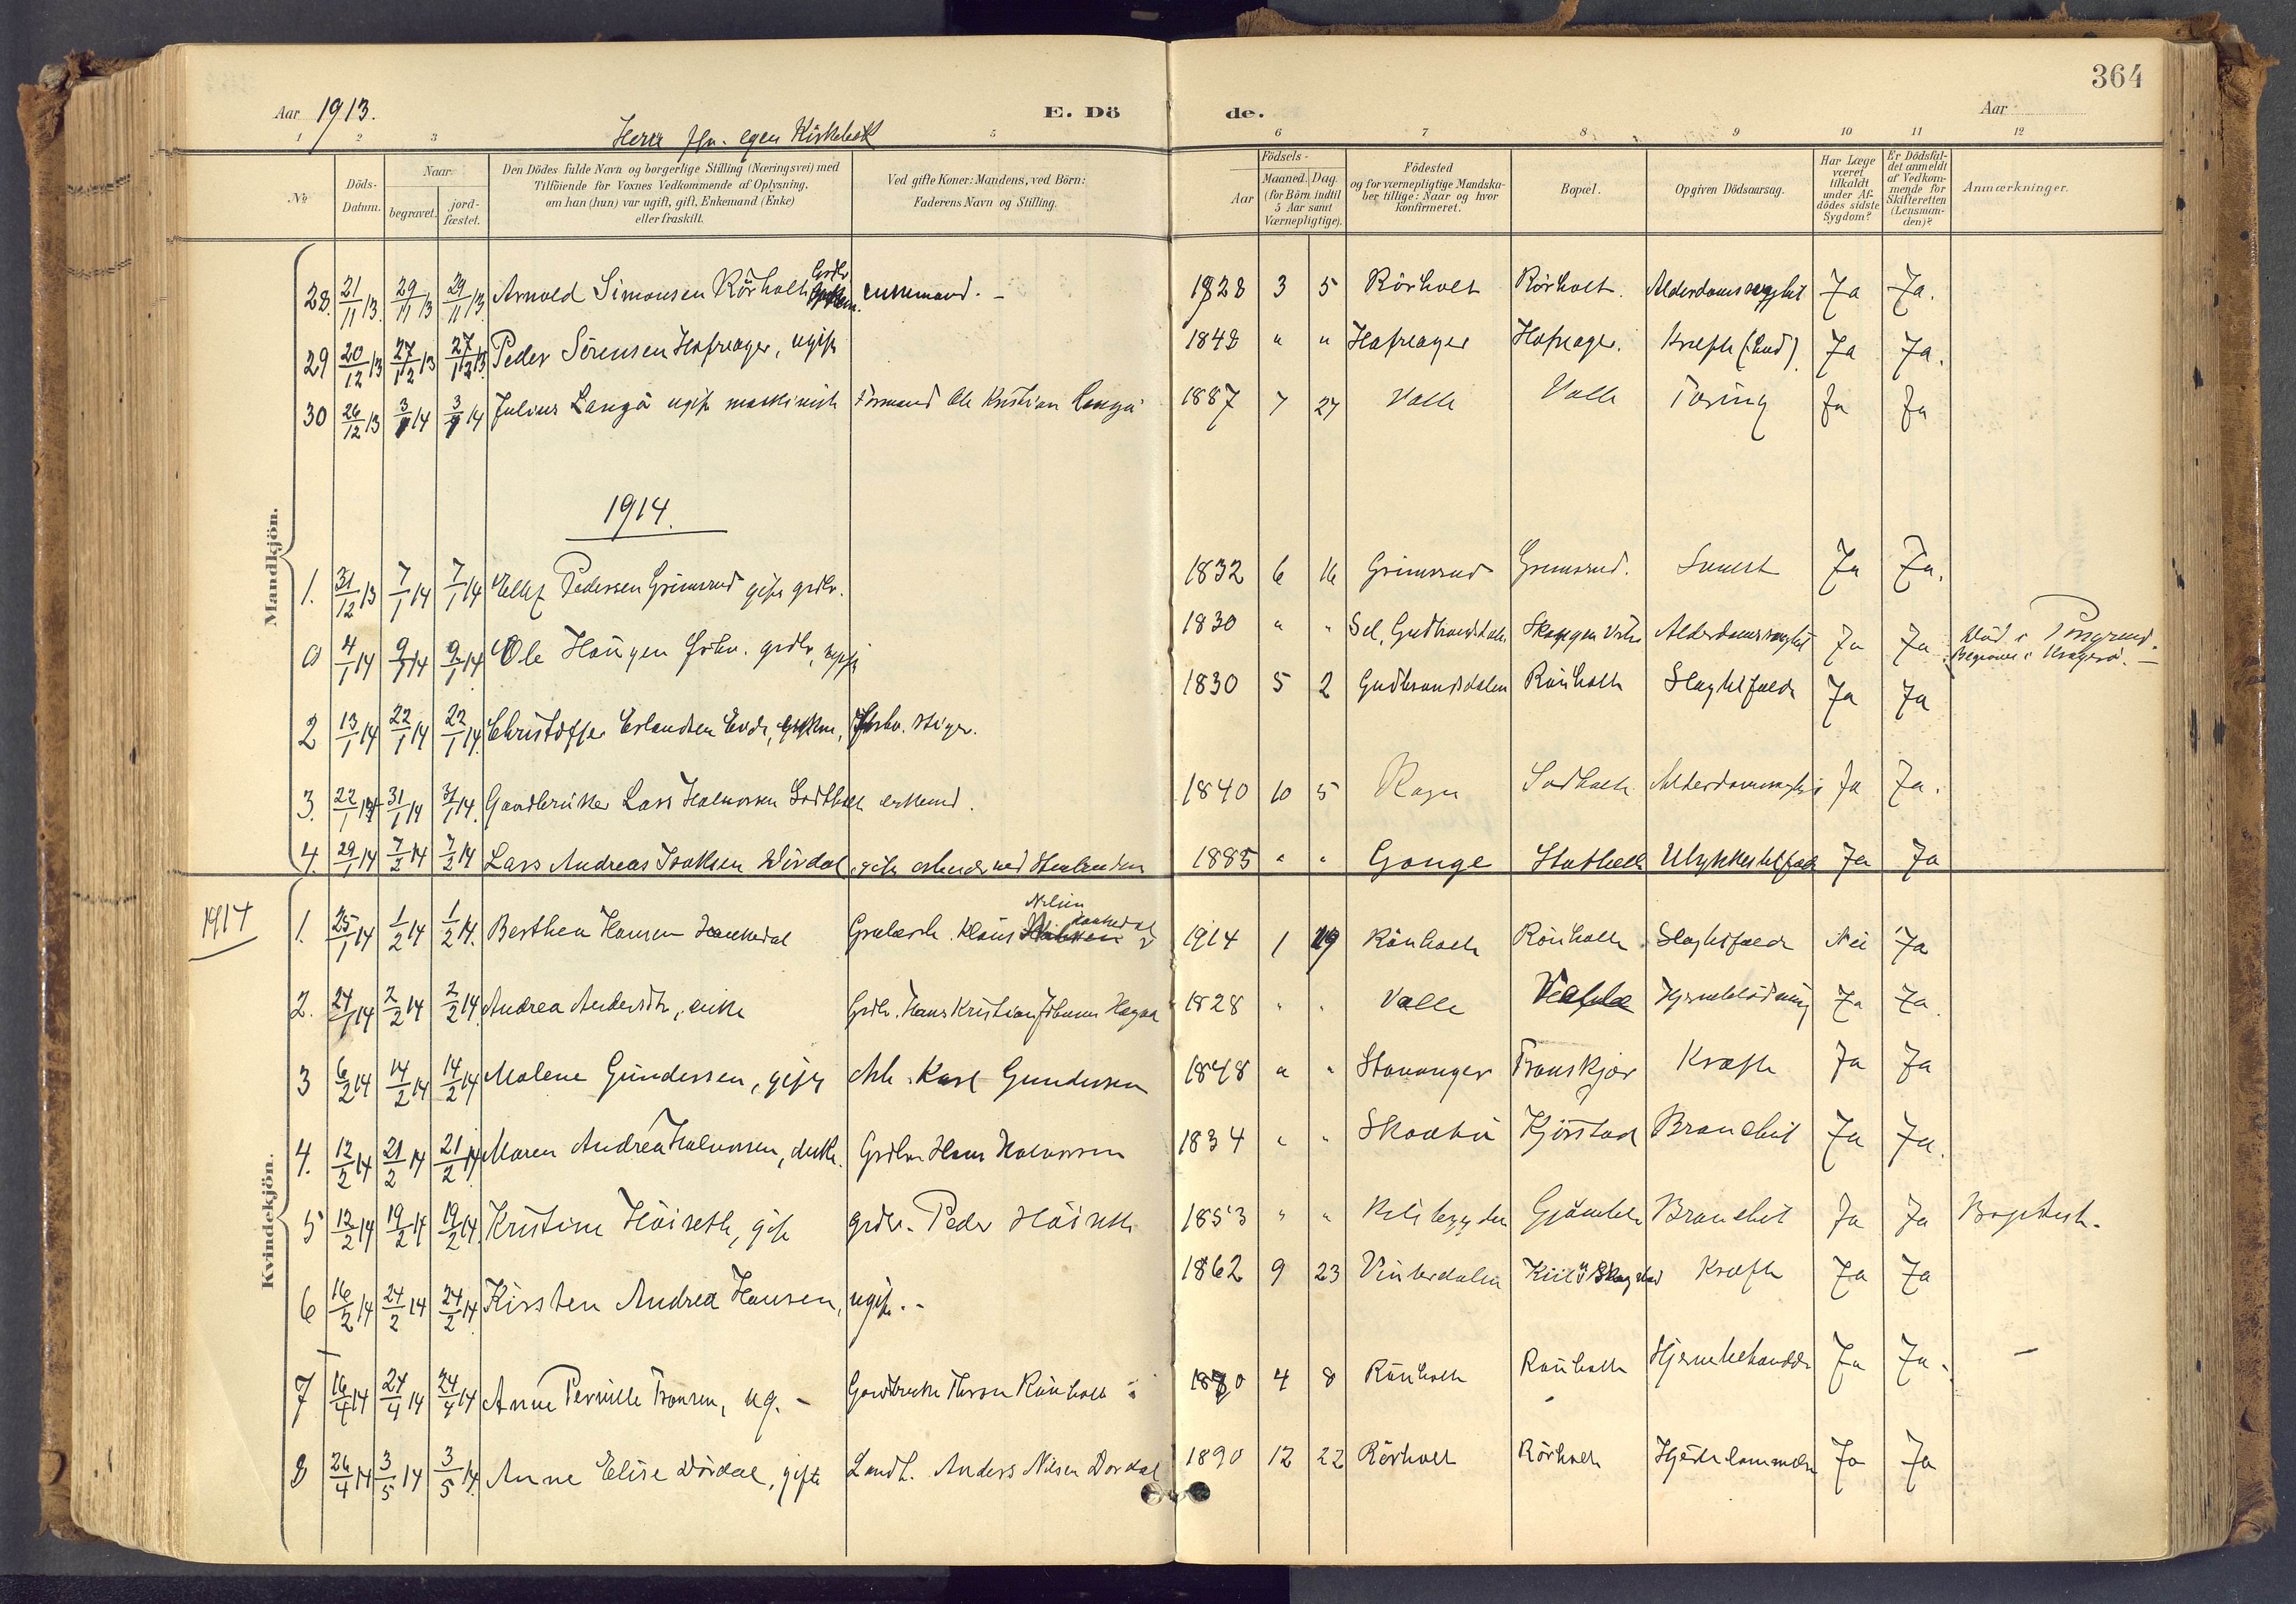 364
Aar 1913. E. Dö de. Aar
Herre egen Kirkebok
1 2 3 5 6 7 8 9 10 11 12
No
Döds-Datum.
Naar
begravet.
jord-fæstet.
Den Dödes fulde Navn og borgerlige Stilling (Næringsvei) med
Tilföiende for Voxnes Vedkommende af Oplysning,
om han (hun) var ugift, gift, Enkemand (Enke)
eller fraskilt.
Ved gifte Koner: Mandens, ved Börn:
Faderens Navn og Stilling.
Födsels-
Aar
Maaned. Dag.
(for Börn indtil
5 Aar samt
Værnepligtige).
Födested
og for værnepligtige Mandska-
ber tillige: Naar og hvor
konfirmeret.
Bopæl.
Opgiven Dödsaarsag.
Har Læge
været
tilkaldt
under Af-
dödes sidste
Sygdom?
Er Dödsfal-
det anmeldt
af Vedkom-
mende for
Skifteretten
(Lensman-
den)?
Anmærkninger.
Mandkjön.
28. 21/11 13. 29/11 13 29/11 13. Arnold Simonsen Rörholt Grdbr enkemand. - 1828 3 5 Rörholt Rörholt. Alderdomssvaghet Ja Ja.
29 20/12 13 27/12 13 27/12 13. Peder Sörensen Hafreager, ugift 1848 " " Hafreager Hafreager. Kræft Ja Ja.
30 26/12 13 3/1 14 3/1 14 Julius Langö ugift maskinist Formand Ole Kristian Langö 1887 7 27 Valle Valle Tæring Ja Ja
1914.
1. 31/12 13 7/1 14 7/1 14 Pedersen Grimsrud gift grdbr. 1832 6 16 Grimsrud Grimsrud. Ja Ja.
0 4/1 14 9/1 14 9/1 14 Ole Haugen forhv. grdbr, 1830 " " Sel, Gudbrandsdalen Alderdomssvaghet Ja Ja Död i Porsgrund. Begravet i Kragerö. -
2 13/1 14 22/1 14 22/1 14. Christoffer Erlandsen forhv. stiger. 1830 5 2 Gudbrandsdalen Rörholt Slagtilfælde Ja Ja
3. 22/1 14 31/1 14 31/1 14. Gaardbruker Lars Halvorsen enkemd. 1840 10 5 Alderdomssvaghet Ja Ja.
4. 29/1 14 7/2 14 7/2 14 Lars Andreas Isaksen Dördal, gift 1885 " " Gonge Stathelle Ulykkestilfælde Ja Ja
1914
Kvindekjön.
1. 25/1 14 1/2 14 1/2 14. Berthea Hansen Hankedal Klaus Nilsen Hankedal 1914 1 19 Rörholt Rörholt Slagtilfælde Nei Ja
2. 24/1 14 2/2 14 2/2 14. Andrea Andersdtr, enke Grdbr. Hans Kristian 1828 " " Valle Valle Hjerneblödning Ja Ja.
3 6/2 14 14/2 14 14/2 14 Malene Gundersen, gift Arb. Karl Gundersen 1848 " " Stavanger Transkjær Kræft Ja Ja
4. 12/2 14 21/2 14 21/2 14 Maren Andrea Halvorsen, enke. Grdbr Hans Halvorsen 1834 " " Kjörstad Bronchit Ja Ja.
5 12/2 14 19/2 14 19/2 14. Kristine Höiseth, gift grdbr. Peder Höiseth 1853 " " Bronchit Ja Ja Baptist.
6 16/2 14 24/2 14 24/2 14 Kirsten Andrea Hansen, ugift. - 1862 9 23 Vinterdalen Kræft Ja Ja
7 16/4 14 24/4 14 24/4 14 Anne Pernille Tronsen, ug. - Gaardbruker Rörholt 1870 4 8 Rörholt Rörholt Ja Ja. -
8 26/4 14 3/5 14 3/5 14. Anne Elise Dördal, gift Landh. Anders Nilsen Dördal 1890 12 22 Rörholt Rörholt Ja Ja